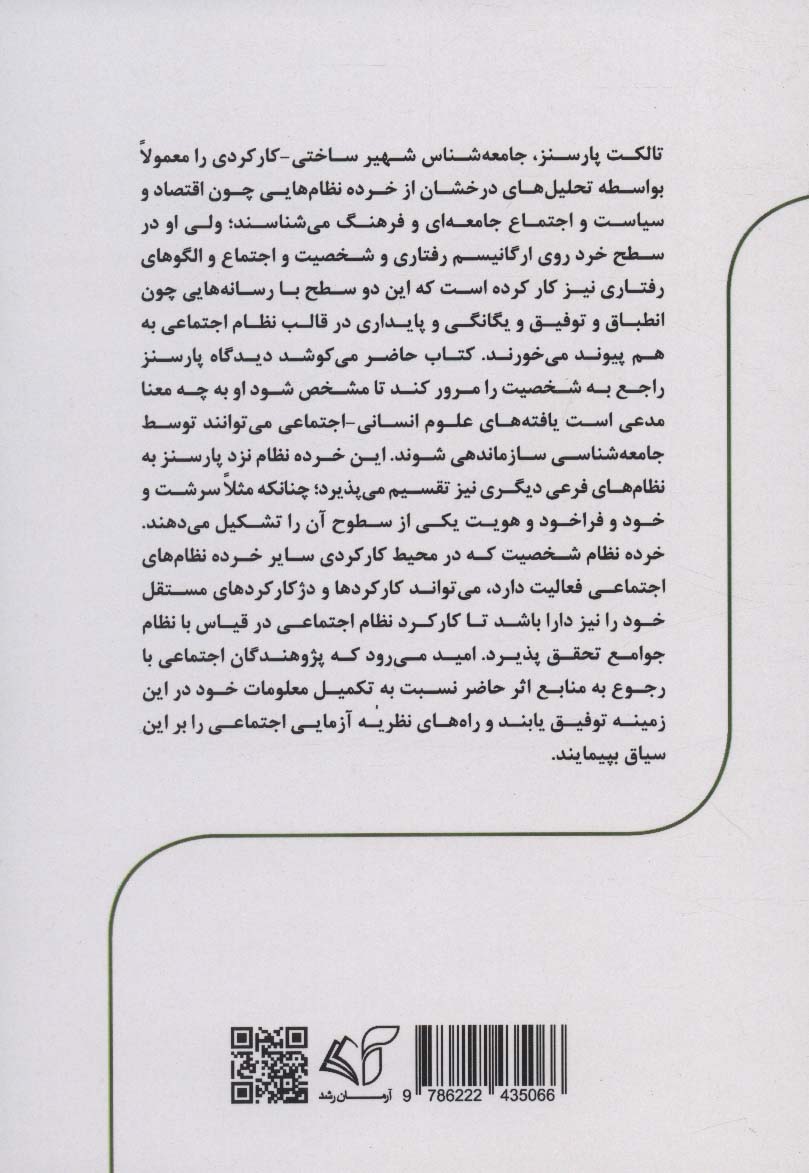 تالکت پارسنز، جامعه‌شناس شهیر ساختی-کارکردی را معمولاً
بواسطه تحلیل‌های درخشان از خرده نظام‌هایی چون اقتصاد و
سیاست و اجتماع جامعه‌ای و فرهنگ می‌شناسند؛ ولی او در
سطح خرد روی ارگانیسم رفتاری و شخصیت و اجتماع و الگوهای
رفتاری نیز کار کرده است که این دو سطح با رسانه‌هایی چون
انطباق و توفیق و یگانگی و پایداری در قالب نظام اجتماعی به
هم پیوند می‌خورند. کتاب حاضر می‌کوشد دیدگاه پارسنز
راجع به شخصیت را مرور کند تا مشخص شود او به چه معنا
مدعی است یافته‌های علوم انسانی-اجتماعی می‌توانند توسط
جامعه‌شناسی سازماندهی شوند. این خرده نظام نزد پارسنز به
نظام‌های فرعی دیگری نیز تقسیم می‌پذیرد؛ چنانکه مثلاً سرشت و
خود و فراخود و هویت یکی از سطوح آن را تشکیل می‌دهند.
خرده نظام شخصیت که در محیط کارکردی سایر خرده نظام‌های
اجتماعی فعالیت دارد، می‌تواند کارکردها و دژکارکردهای مستقل
خود را نیز دارا باشد تا کارکرد نظام اجتماعی در قیاس با نظام
جوامع تحقق پذیرد. امید می‌رود که پژوهندگان اجتماعی با
رجوع به منابع اثر حاضر نسبت به تکمیل معلومات خود در این
زمینه توفیق یابند و راه‌های نظریه آزمایی اجتماعی را بر این
سیاق بپیمایند.
آرمان رشد
9 786222 435066